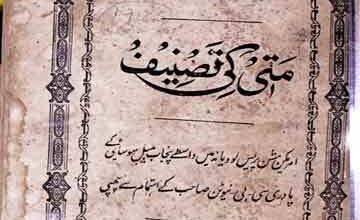 متی کی تصنیف
امریکن مشن پریس لودیانہ میں واسطے پنجاب بیبل سوسائٹی کے
پادری سی بی نیوٹن صاحب کے اہتمام سے چھپی